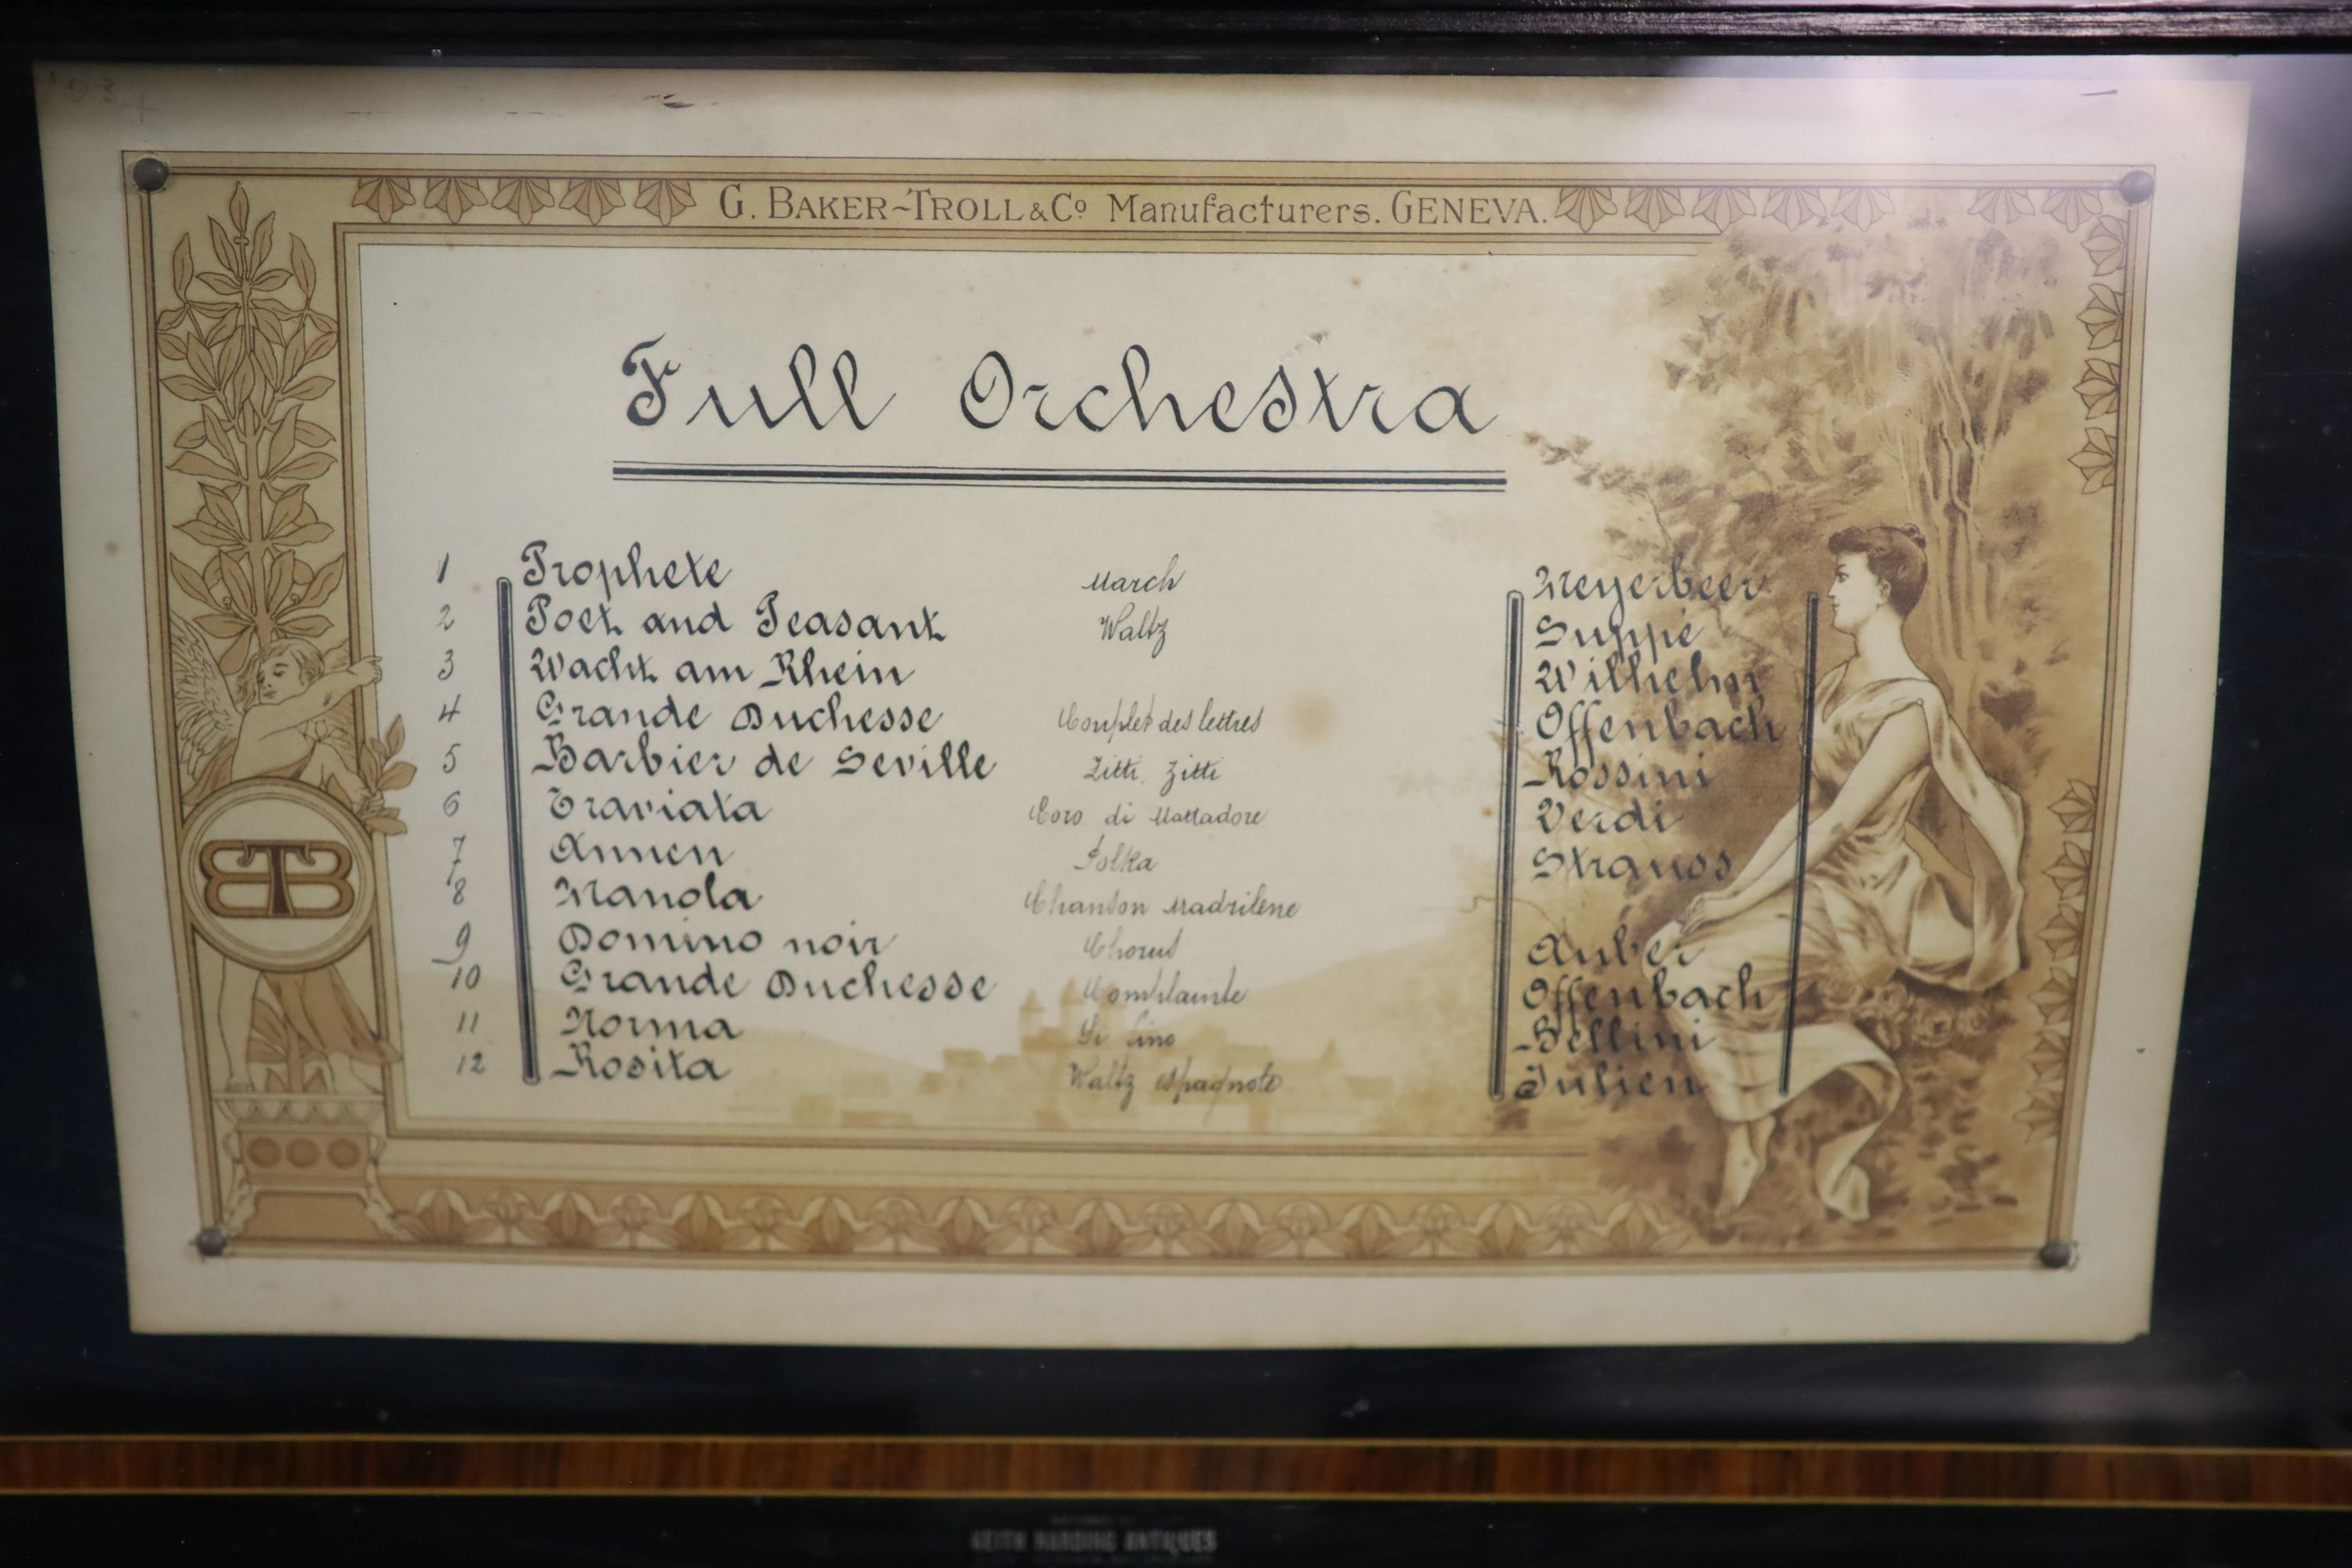 G. BAKER~TROLL & Cº Manufacturers. GENEVA.
Full Orchestra
1 Prophete March Meyerbeer
2 Poet and Peasant Waltz Suppé
3 Wacht am Rhein Wilhelm
4 Grande Duchesse Couplet des lettres Offenbach
5 Barbier de Seville Zitti, Zitti Rossini
6 Traviata Coro di Mattadore Verdi
7 Annen Polka Strauss
8 Manola Chanson Madrilene
9 Domino noir Chorus Auber
10 Grande Duchesse Complainte Offenbach
11 Norma Bellini
12 Rosita Waltz espagnole Julien
BTB
KEITH HARDING ANTIQUES